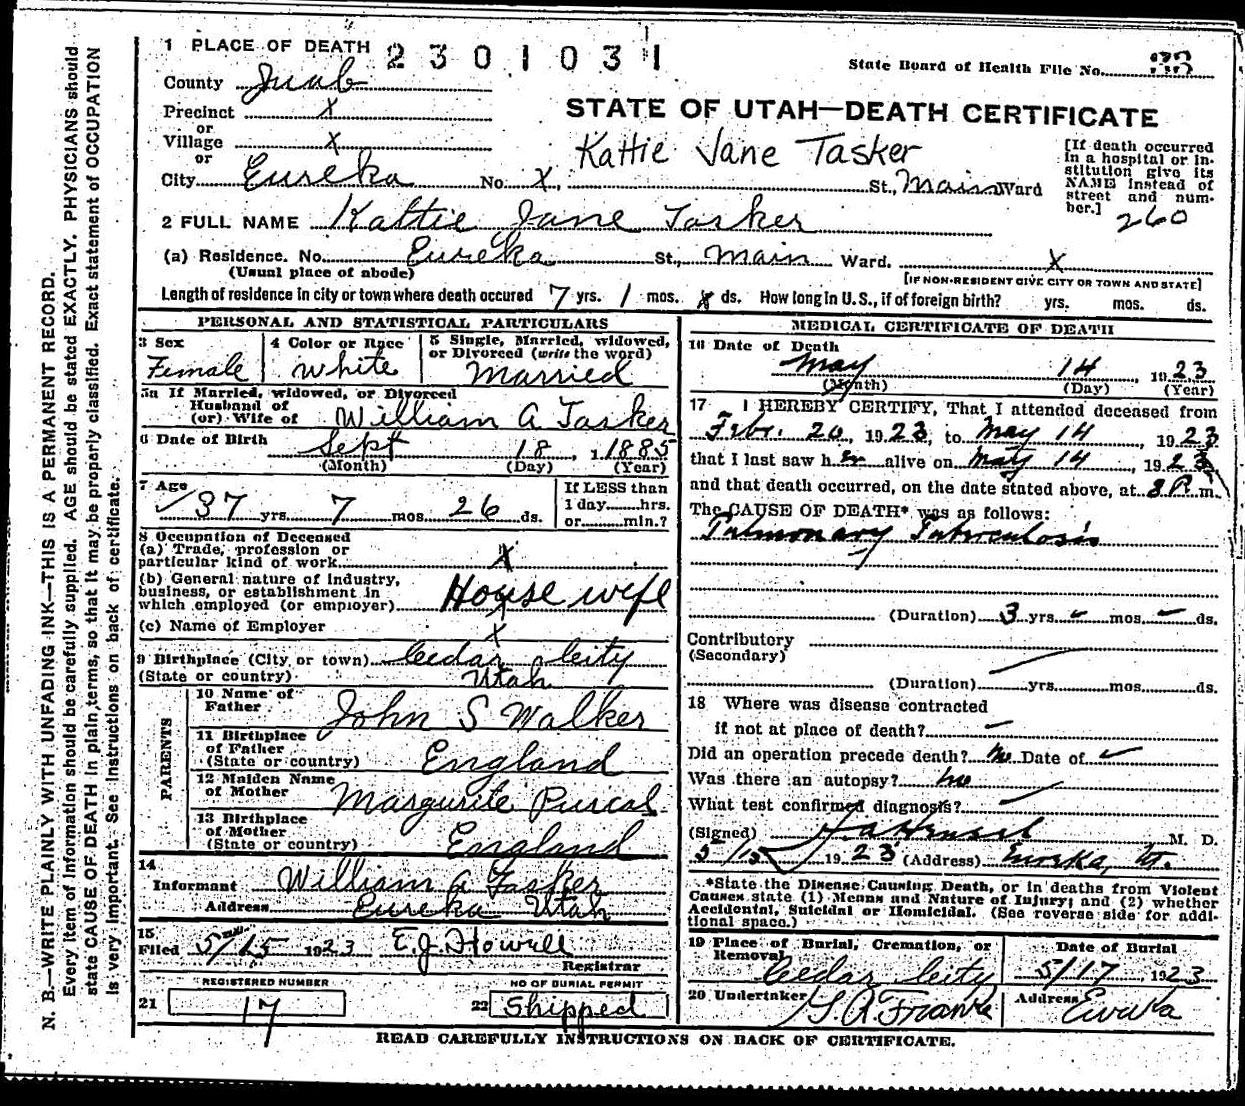 N. B.—WRITE PLAINLY WITH UNFADING INK—THIS IS A PERMANENT RECORD.
Every item of information should be carefully supplied. AGE should be stated EXACTLY. PHYSICIANS should
state CAUSE OF DEATH in plain terms, so that it may be properly classified. Exact statement of OCCUPATION
is very important. See instructions on back of certificate.
1 PLACE OF DEATH 2301031
State Board of Health File No.
County Juab
STATE OF UTAH—DEATH CERTIFICATE
Precinct X
or
Village X
or
Kattie Jane Tasker
City Eureka No. X, St., Main Ward
[If death occurred
in a hospital or in-
stitution give its
NAME instead of
street and num-
ber.]
260
2 FULL NAME Kattie Jane Tasker
(a) Residence. No. Eureka St., Main Ward. X
(Usual place of abode)
[IF NON-RESIDENT GIVE CITY OR TOWN AND STATE]
Length of residence in city or town where death occured 7 yrs. 1 mos. X ds. How long in U.S., if of foreign birth? yrs. mos. ds.
PERSONAL AND STATISTICAL PARTICULARS
3 Sex
Female
4 Color or Race
White
5 Single, Married, widowed,
or Divorced (write the word)
Married
5a If Married, widowed, or Divorced
Husband of
(or) Wife of William A Tasker
6 Date of Birth Sept 18, 1885
(Month) (Day) (Year)
7 Age
37 yrs. 7 mos. 26 ds.
If LESS than
1 day hrs.
or min.?
8 Occupation of Deceased
(a) Trade, profession or
particular kind of work X
(b) General nature of industry,
business, or establishment in
which employed (or employer) House wife
(c) Name of Employer X
9 Birthplace (City or town) Cedar City
(State or country) Utah
PARENTS
10 Name of
Father John S Walker
11 Birthplace
of Father
(State or country) England
12 Maiden Name
of Mother Margurite Purcal
13 Birthplace
of Mother
(State or country) England
14
Informant William A Tasker
Address Eureka Utah
15
Filed 5/15 1923 E.J. Howell
Registrar
REGISTERED NUMBER
21 17
NO OF BURIAL PERMIT
22 Shipped
MEDICAL CERTIFICATE OF DEATH
16 Date of Death
May 14, 1923
(Month) (Day) (Year)
17 I HEREBY CERTIFY, That I attended deceased from
Febr. 20, 1923, to May 14, 1923
that I last saw her alive on May 14, 1923
and that death occurred, on the date stated above, at 8 P. m.
The CAUSE OF DEATH* was as follows:
Pulmonary Tuberculosis
(Duration) 3 yrs. mos. ds.
Contributory
(Secondary)
(Duration) yrs. mos. ds.
18 Where was disease contracted
if not at place of death?
Did an operation precede death? No Date of
Was there an autopsy? No
What test confirmed diagnosis?
(Signed) M. D.
5/15 1923 (Address) Eureka, Ut.
*State the Disease Causing Death, or in deaths from Violent
Causes state (1) Means and Nature of Injury; and (2) whether
Accidental, Suicidal or Homicidal. (See reverse side for addi-
tional space.)
19 Place of Burial, Cremation, or
Removal
Cedar City
Date of Burial
5/17 1923
20 Undertaker Franke
Address Eureka
READ CAREFULLY INSTRUCTIONS ON BACK OF CERTIFICATE.